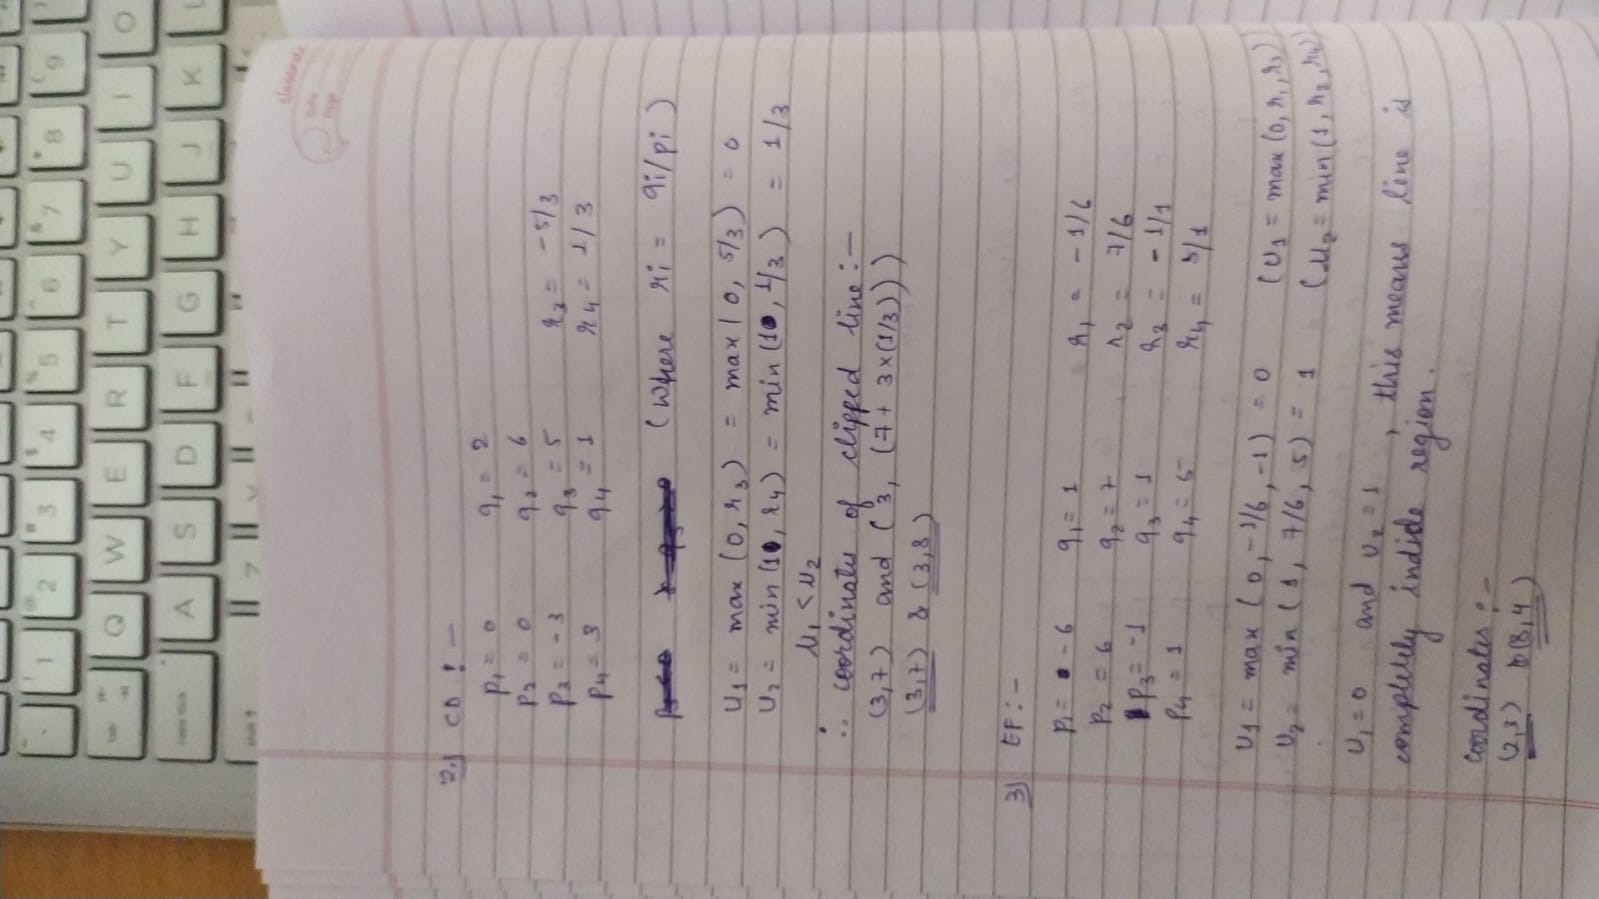 classmate
Date
Page
2.) CD :-
p1 = 0 q1 = 2
p2 = 0 q2 = 6
p3 = -3 q3 = 5 r3 = -5/3
p4 = 3 q4 = 1 r4 = 1/3
(where ri = qi/pi)
U1 = max (0, r3) = max (0, 5/3) = 0
U2 = min (1, r4) = min (1, 1/3) = 1/3
u1 < u2
∴ coordinates of clipped line :-
(3,7) and (3, (7 + 3x(1/3)))
(3,7) & (3,8)
3) EF :-
p1 = -6 q1 = 1 r1 = -1/6
p2 = 6 q2 = 7 r2 = 7/6
p3 = -1 q3 = 1 r3 = -1/1
p4 = 1 q4 = 5 r4 = 5/1
U1 = max (0, -1/6, -1) = 0 (U1 = max (0, r1, r3))
U2 = min (1, 7/6, 5) = 1 (U2 = min (1, r2, r4))
U1 = 0 and U2 = 1, this means line is
completely inside region.
Coordinates :-
(2,3) & (8,4)
~
! 1
@ 2
# 3
$ 4
% 5
^ 6
& 7
* 8
( 9
tab
Q
W
E
R
T
Y
U
I
O
caps lock
A
S
D
F
G
H
J
K
L
shift
Z